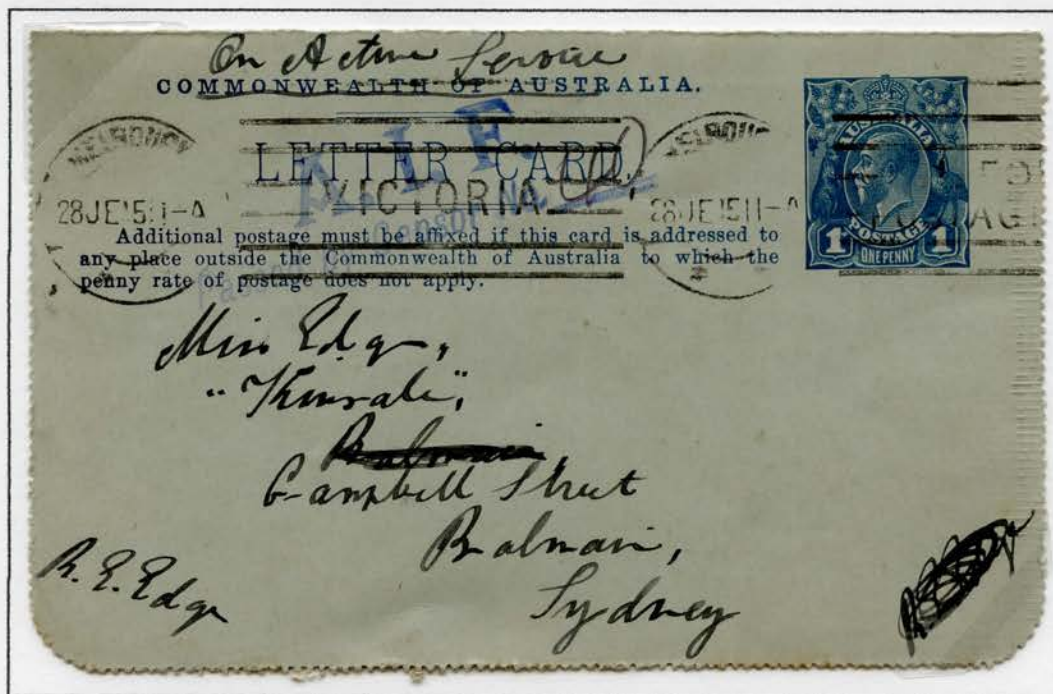 On Active Service
COMMONWEALTH OF AUSTRALIA.
A.I.F.
LETTER CARD.
VICTORIA
MELBOURN
28 JE 15 11-A
28 JE 15 11-A
AUSTRALIA
POSTAGE
1 1
ONE PENNY
Additional postage must be affixed if this card is addressed to
any place outside the Commonwealth of Australia to which the
penny rate of postage does not apply.
Miss Edge,
"Kinsale",
Balmain
Campbell Street
Balmain,
Sydney
R. E. Edge